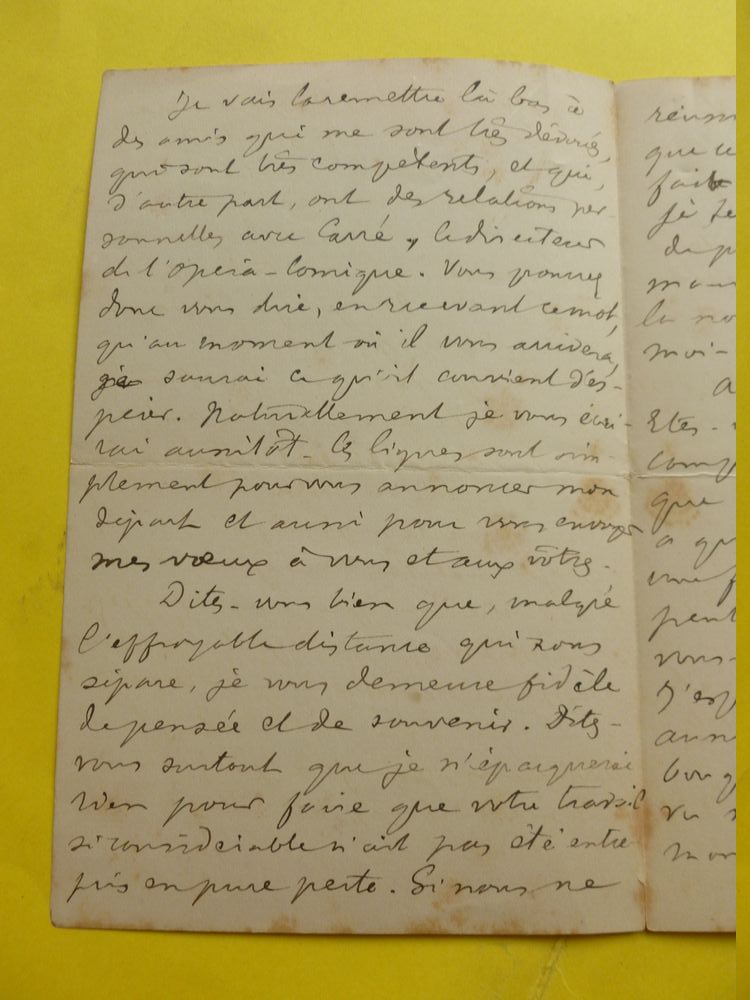 Je vais la remettre là bas à
des amis qui me sont très dévoués,
qui sont très compétents, et qui,
d'autre part, ont des relations per-
sonnelles avec Carré, le directeur
de l'opéra-Comique. Vous pouvez
donc vous dire, en recevant ce mot,
qu'au moment où il vous arrivera,
je saurai ce qu'il convient d'es-
pérer. Naturellement je vous écri-
rai aussitôt. Ces lignes sont sim-
plement pour vous annoncer mon
départ et aussi pour vous envoyer
mes vœux à vous et aux vôtres.
Dites-vous bien que, malgré
l'effroyable distance qui nous
sépare, je vous demeure fidèle
de pensée et de souvenir. Dites-
vous surtout que je n'épargnerai
rien pour faire que votre travail
si considérable n'ait pas été entre
pris en pure perte. Si nous ne
réuni
que
fait
je
de
la
moi-
Etes-
comp
que
a
vous-
bon